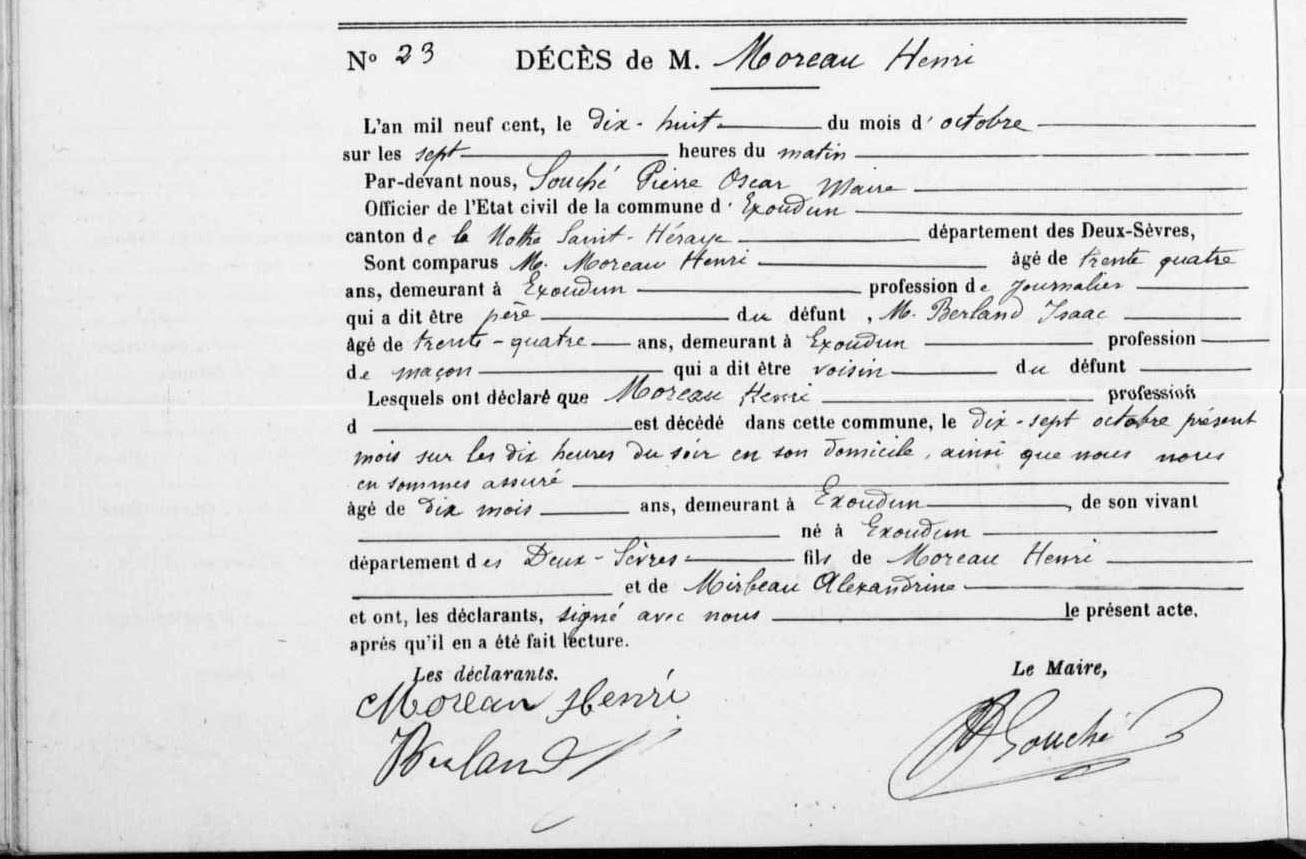 N° 23 DÉCÈS de M. Moreau Henri
L'an mil neuf cent, le dix-huit du mois d'octobre
sur les sept heures du matin
Par-devant nous, Souché Pierre Oscar Maire
Officier de l'Etat civil de la commune d'Exoudun
canton de la Mothe Saint-Héraye département des Deux-Sèvres,
Sont comparus M. Moreau Henri âgé de trente quatre
ans, demeurant à Exoudun profession de journalier
qui a dit être père du défunt, M. Berland Isaac
âgé de trente-quatre ans, demeurant à Exoudun profession
de maçon qui a dit être voisin du défunt
Lesquels ont déclaré que Moreau Henri profession
d est décédé dans cette commune, le dix-sept octobre présent
mois sur les dix heures du soir en son domicile, ainsi que nous nous
en sommes assuré
âgé de dix mois ans, demeurant à Exoudun, de son vivant
né à Exoudun
département des Deux-Sèvres fils de Moreau Henri
et de Mirbeau Alexandrine
et ont, les déclarants, signé avec nous le présent acte,
aprés qu'il en a été fait lecture.
Les déclarants. Le Maire,
Moreau Henri
Berland Souché